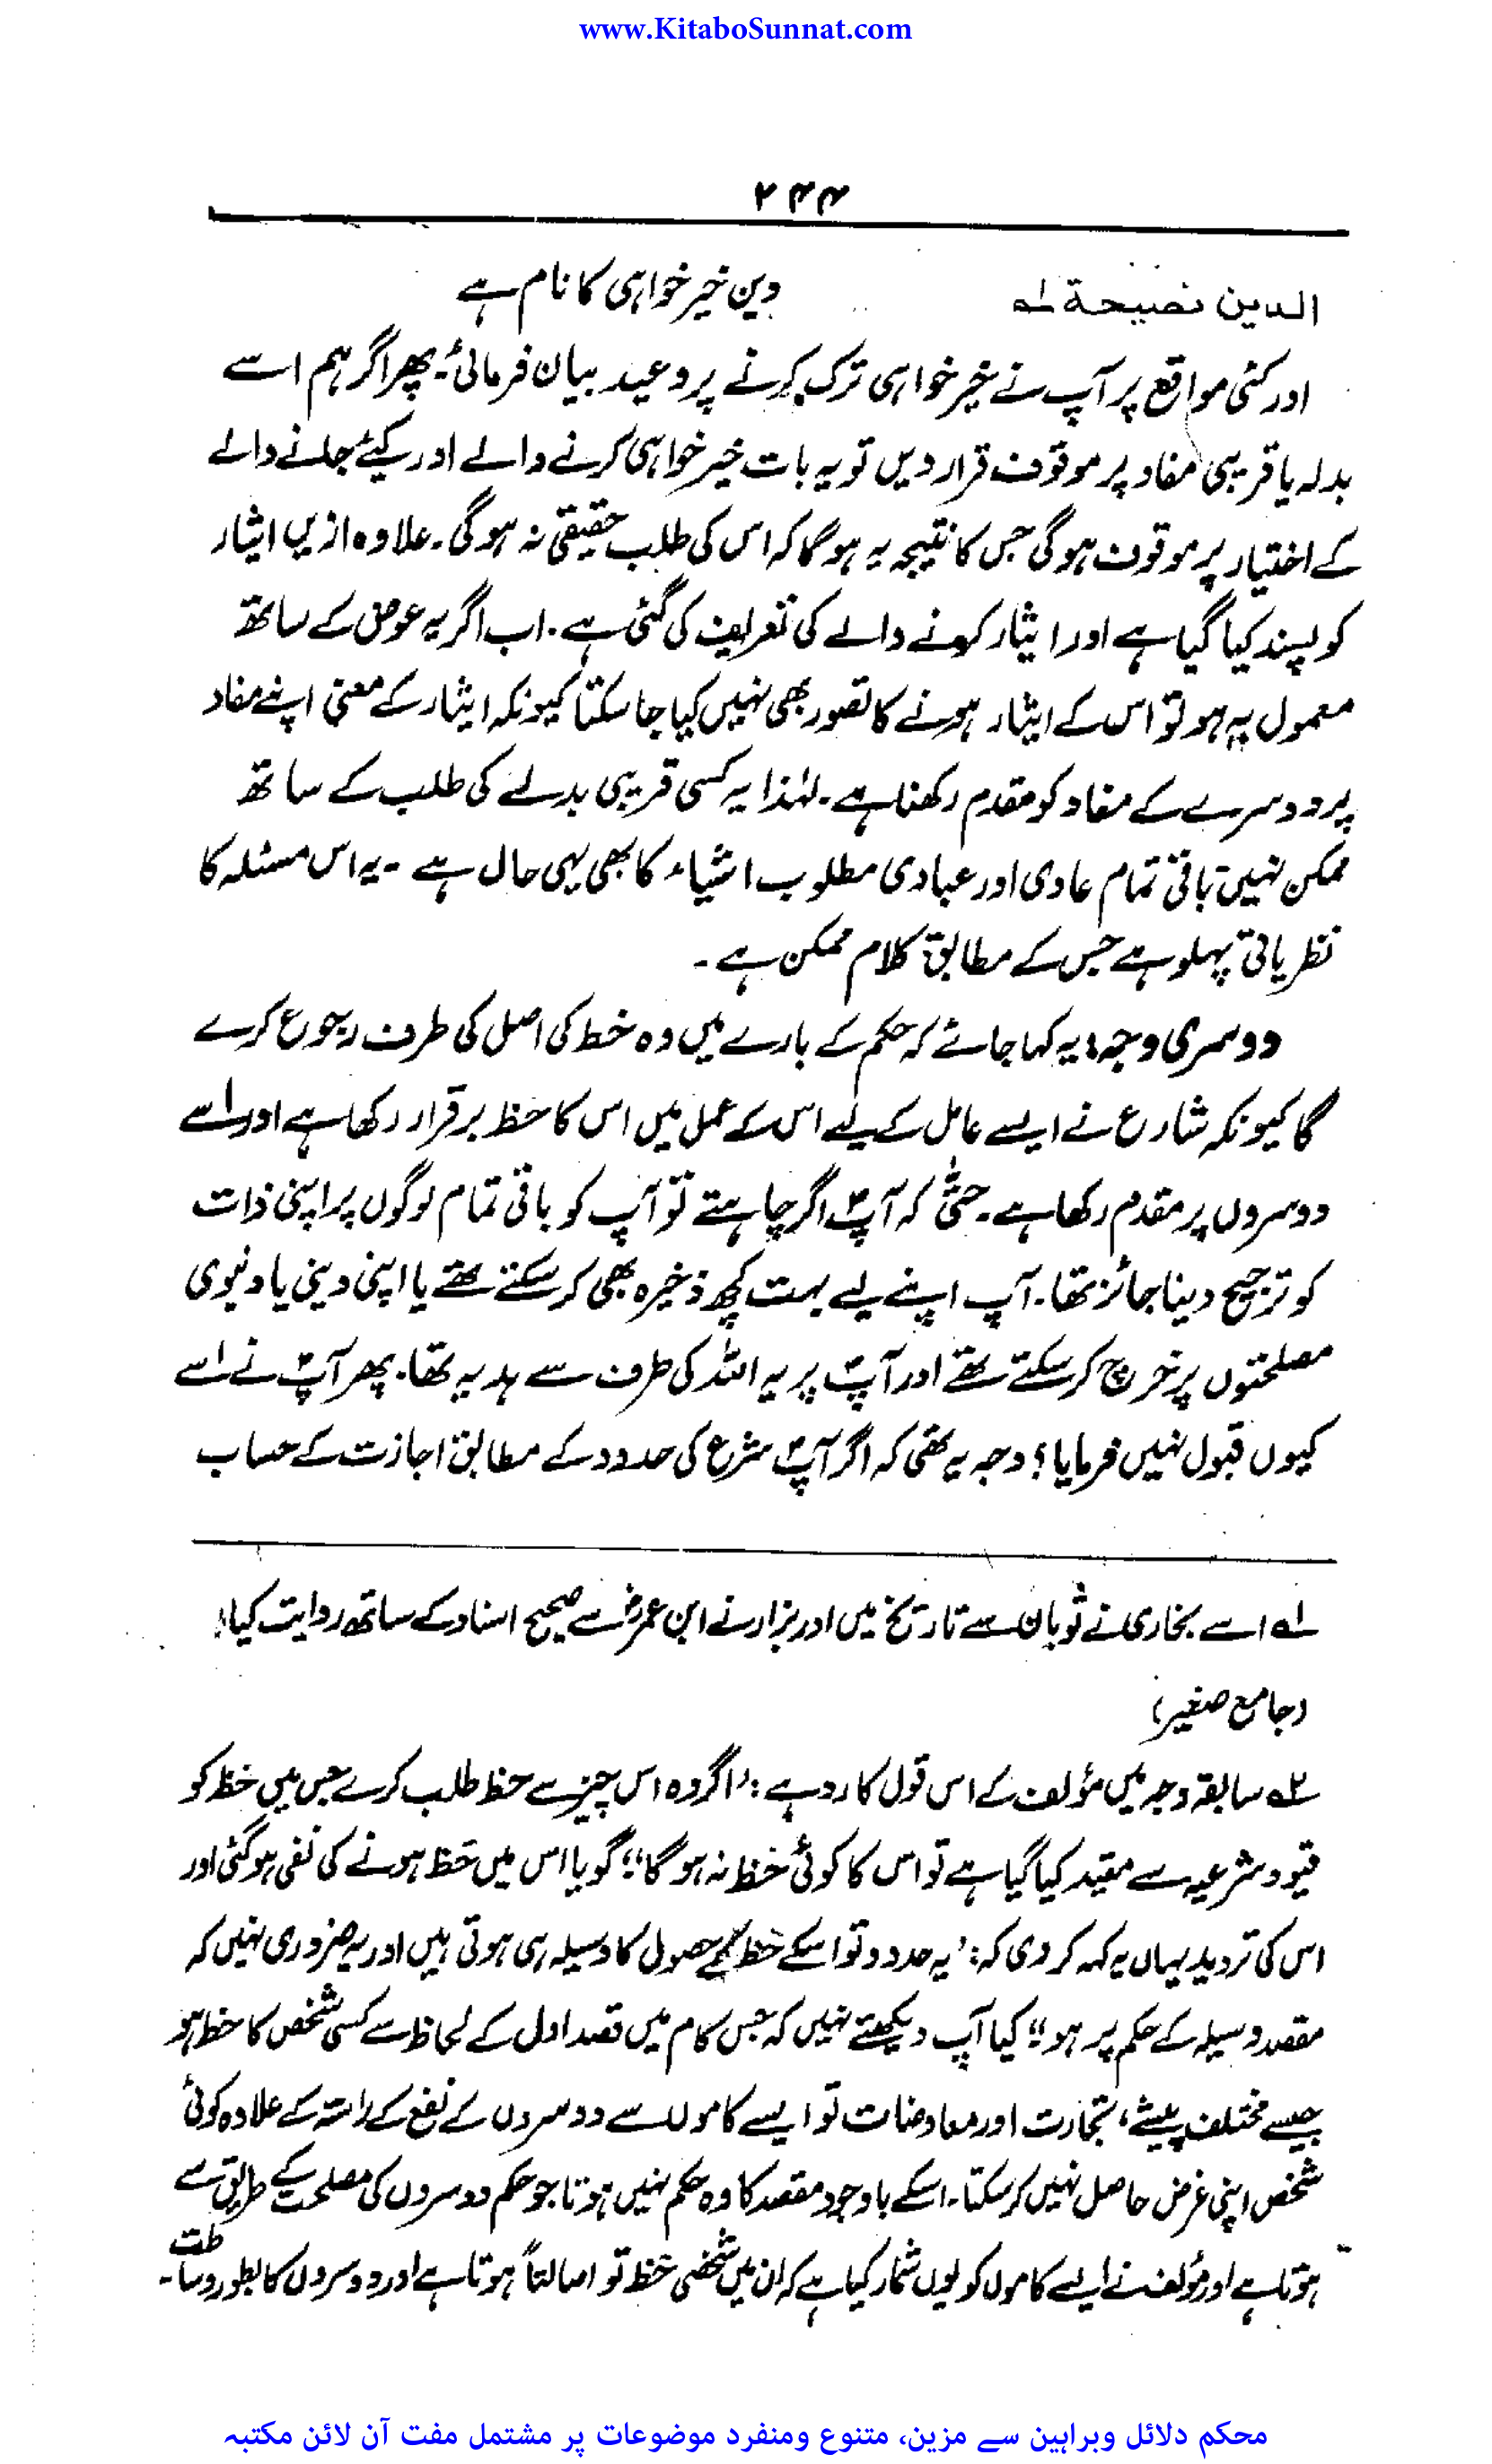 www.KitaboSunnat.com
۲۴۴
الدین نصیحة لہ دین خیر خواہی کا نام ہے
اور کئی مواقع پر آپ نے خیر خواہی ترک کرنے پر وعید بیان فرمائی۔ پھر اگر ہم اسے
بدلہ یا قریبی مفاد پر موقوف قرار دیں تو یہ بات خیر خواہی کرنے والے اور کیئے جانے والے
کے اختیار پر موقوف ہوگی جس کا نتیجہ یہ ہوگا کہ اس کی طلب حقیقی نہ ہوگی۔ علاوہ ازیں ایثار
کو پسند کیا گیا ہے اور ایثار کرنے والے کی تعریف کی گئی ہے۔ اب اگر یہ عوض کے ساتھ
معمول بہ ہو تو اس کے ایثار ہونے کا تصور بھی نہیں کیا جا سکتا کیونکہ ایثار کے معنی اپنے مفاد
پر دوسرے کے مفاد کو مقدم رکھنا ہے۔ لہٰذا یہ کسی قریبی بدلے کی طلب کے ساتھ
ممکن نہیں۔ باقی تمام عادی اور عبادی مطلوب اشیاء کا بھی یہی حال ہے ۔ یہ اس مسئلہ کا
نظریاتی پہلو ہے جس کے مطابق کلام ممکن ہے ۔
دوسری وجہ: یہ کہا جائے کہ حکم کے بارے میں وہ خط کی اصل کی طرف رجوع کرے
گا کیونکہ شارع نے ایسے عامل کے لیے اس کے عمل میں اس کا حظ برقرار رکھا ہے اور اسے
دوسروں پر مقدم رکھا ہے۔ حتّٰی کہ آپؐ اگر چاہتے تو آپ کو باقی تمام لوگوں پر اپنی ذات
کو ترجیح دینا جائز تھا۔ آپ اپنے لیے بہت کچھ ذخیرہ بھی کر سکتے تھے یا اپنی دینی یا دنیوی
مصلحتوں پر خرچ کر سکتے تھے اور آپؐ پر یہ اللہ کی طرف سے ہدیہ تھا۔ پھر آپؐ نے اسے
کیوں قبول نہیں فرمایا؟ وجہ یہ تھی کہ اگر آپؐ شرع کی حدود کے مطابق اجازت کے حساب
لہ اسے بخاری نے ثوبان سے تاریخ میں اور بزار نے ابن عمرؓ سے صحیح اسناد کے ساتھ روایت کیا۔
(جامع صغیر)
۲ہ سابقہ وجہ میں مؤلف کے اس قول کا رد ہے: "اگر وہ اس چیز سے حظ طلب کرے جس میں خظ کو
قیود شرعیہ سے مقید کیا گیا ہے تو اس کا کوئی خظ نہ ہو گا"؛ گویا اس میں حَظ ہونے کی نفی ہوگئی اور
اس کی تردید یہاں یہ کہہ کر دی کہ: 'یہ حدود تو اسکے خظ کے حصول کا وسیلہ ہی ہوتی ہیں اور یہ ضروری نہیں کہ
مقصد وسیلہ کے حکم پر ہو"؛ کیا آپ دیکھتے نہیں کہ جس کام میں قصد اول کے لحاظ سے کسی شخص کا خظ ہو
جیسے مختلف پیشے، تجارت اور معاوضات تو ایسے کاموں سے دوسروں کے نفع کے راستہ کے علاوہ کوئی
شخص اپنی غرض حاصل نہیں کر سکتا۔ اسکے باوجود مقصد کا وہ حکم نہیں ہوتا جو حکم دوسروں کی مصلحت کے طریق سے
ہوتا ہے اور مؤلف نے ایسے کاموں کو یوں شمار کیا ہے کہ ان میں شخصی خظ تو اصالتاً ہوتا ہے اور دوسروں کا بطور وساطت۔
محکم دلائل وبراہین سے مزین، متنوع ومنفرد موضوعات پر مشتمل مفت آن لائن مکتبہ